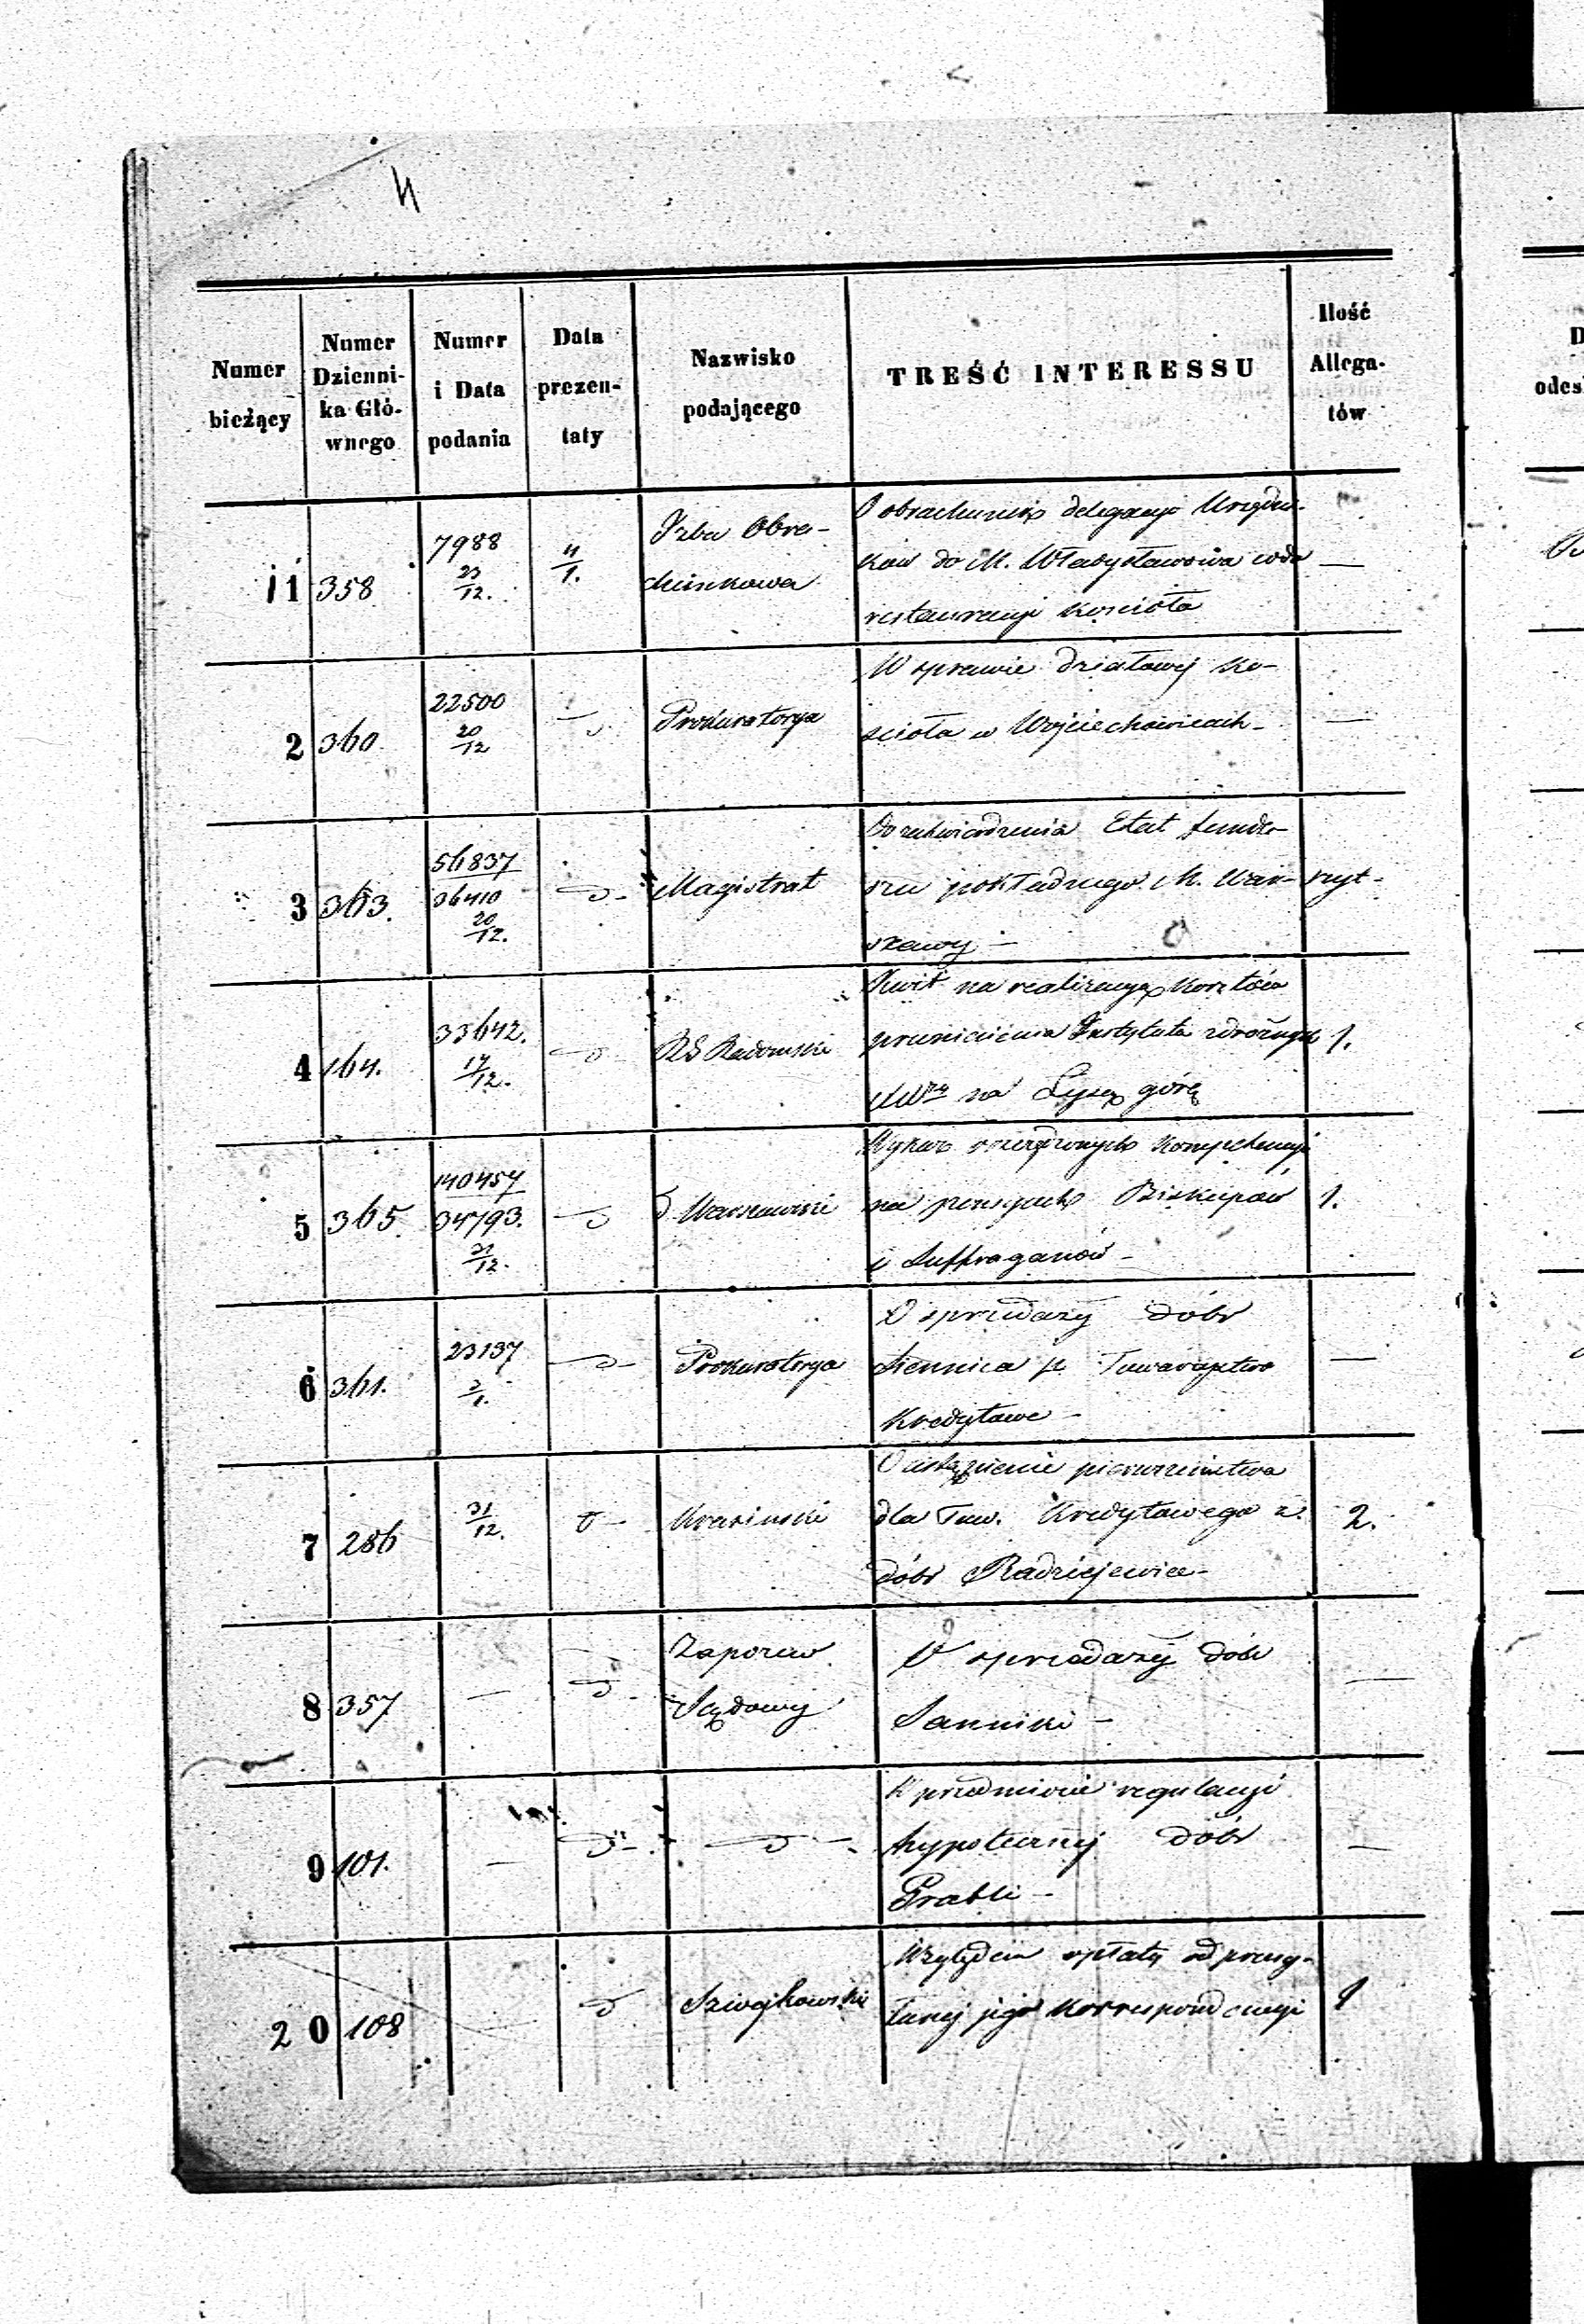 4
Numer bieżący
Numer Dzienni-ka Głó-wnego
Numer i Data podania
Data prezen-taty
Nazwisko podającego
TREŚĆ INTERESSU
Ilość Allega-tów
11 358 7988 23/12. 4/1. Izba Obra- O obrachunek delegacyi Urzędni- —
chunkowa ków do M. Władysławowa
restauracyi kościoła
2 360. 22500 20/12 Prokuratorya W sprawie działowej ko- —
ścioła w Wojciechowicach -
3 363. 56837 Do zatwierdzenia Etat fundu-
36410 20/12. Magistrat szu pokładnego M. War- szyt -
szawy -
4 164. 33642. 17/12. Radomski Kwit na realizacyą kosztów 1.
przeniesienia Instytutu zdrożnych
na Łysą górę
5 365. 140457 Wykaz
34793. 31/12. Warszawski na pensyach Biskupów 1.
i Suffraganów -
6 361. 23137 2/1. Prokuratorya O sprzedaży dóbr —
Siennica p. Towarzystwo
Kredytowe -
7 286 31/12. Krasinski O ustąpienie pierwszeństwa 2.
dla Tow. Kredytowego z
dóbr Radziejewice -
8 357 — Zapozew O sprzedaży dóbr —
Sądowy Sanniki -
9 101. — W przedmiocie regulacyi —
hypotecznej dóbr
Prabli -
20 108 Szwojkowski Względem opłaty od przesy- 1
łanej jego korrespondencyi